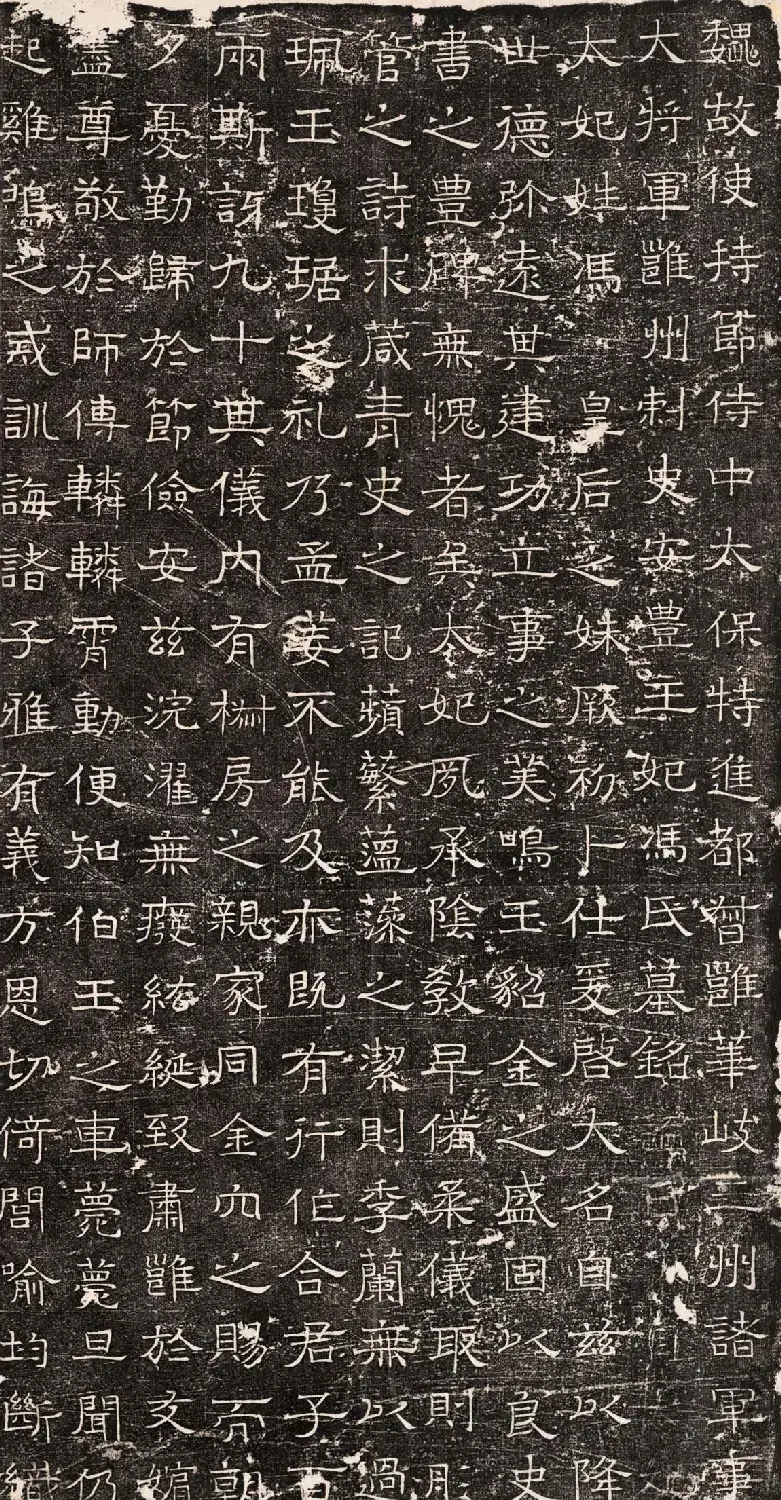 魏故使持節侍中太保特進都督雝華岐三州諸軍事
大將軍雝州刺史安豊王妃馮氏墓銘
太妃姓馮皇后之妹厥初卜仕爰啓大名自茲以降
世德弥遠其建功立事之美鳴玉貂金之盛固以良史
書之豊碑無愧者矣太妃夙承陰敎早備柔儀取則彤
管之詩求葴青史之記蘋蘩薀藻之潔則季蘭無以過
珮玉瓊琚之礼乃孟姜不能及亦旣有行作合君子百
兩斯訝九十其儀内有椒房之親家同金穴之賜而朝
夕憂勤歸於節儉安茲浣濯無癈紘綖致肅雝於支嬪
盡尊敬於師傅轔轔霄動便知伯玉之車薨薨旦聞仍
起雞鳴之戒訓誨諸子雅有義方恩切倚閭喻均斷織